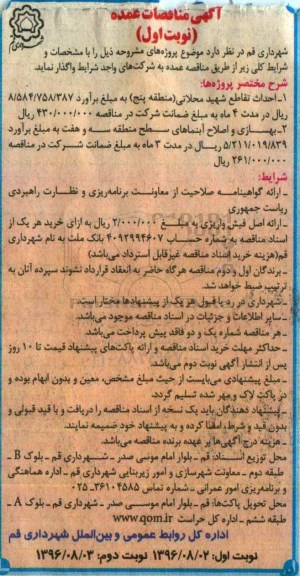 آگهی مناقصات عمده
(نوبت اول)
شهرداری قم در نظر دارد موضوع پروژه‌های مشروحه ذیل را با مشخصات و
شرایط کلی زیر از طریق مناقصه عمده به شرکت‌های واجد شرایط واگذار نماید.
شرح مختصر پروژه‌ها:
۱ـ احداث تقاطع شهید محلاتی (منطقه پنج) به مبلغ برآورد ۸/۵۸۴/۷۵۸/۳۸۷
ریال در مدت ۴ ماه به مبلغ ضمانت شرکت در مناقصه ۴۳۰/۰۰۰/۰۰۰ ریال
۲ـ بهسازی و اصلاح آبنماهای سطح منطقه سه و هفت به مبلغ برآورد
۵/۲۱۱/۰۱۹/۸۳۹ ریال در مدت ۳ ماه به مبلغ ضمانت شرکت در مناقصه
۲۶۱/۰۰۰/۰۰۰ ریال
شرایط:
ـ ارائه گواهینامه صلاحیت از معاونت برنامه‌ریزی و نظارت راهبردی
ریاست جمهوری
ـ ارائه اصل فیش واریزی به مبلغ ۲/۰۰۰/۰۰۰ ریال به ازای خرید هر یک از
اسناد مناقصه به شماره حساب ۴۰۹۲۹۹۴۶۰۷ بانک ملت به نام شهرداری
قم (هزینه خرید اسناد مناقصه غیرقابل استرداد می‌باشد)
ـ برندگان اول و دوم مناقصه هرگاه حاضر به انعقاد قرارداد نشوند سپرده آنان به
ترتیب ضبط خواهد شد.
ـ شهرداری در رد یا قبول هر یک از پیشنهادها مختار است.
ـ سایر اطلاعات و جزئیات در اسناد مناقصه موجود می‌باشد.
ـ هر مناقصه شماره یک و دو فاقد پیش پرداخت می‌باشد.
ـ حداکثر مهلت خرید اسناد مناقصه و ارائه پاکت‌های پیشنهاد قیمت تا ۱۰ روز
پس از انتشار آگهی نوبت دوم می‌باشد.
ـ مبلغ پیشنهادی می‌بایست از حیث مبلغ مشخص، معین و بدون ابهام بوده و
در پاکت لاک و مهر شده تسلیم گردد.
ـ پیشنهاد دهندگان باید یک نسخه از اسناد مناقصه را دریافت و با قید قبولی و
بدون قید و شرط، امضا کرده و به پیشنهاد خود ضمیمه نمایند.
ـ هزینه درج آگهی‌ها بر عهده برنده مناقصه می‌باشد.
محل توزیع اسناد: قم ـ بلوار امام موسی صدر ـ شهرداری قم ـ بلوک B ـ
طبقه دوم ـ معاونت شهرسازی و امور زیربنایی شهرداری قم ـ اداره هماهنگی
و برنامه‌ریزی امور عمرانی ـ شماره تماس ۳۶۱۰۴۵۸۵ـ۰۲۵
محل تحویل پاکت‌ها: قم ـ بلوار امام موسی صدر ـ شهرداری قم ـ بلوک A ـ
طبقه ششم ـ اداره کل حراست www.qom.ir
اداره کل روابط عمومی و بین‌الملل شهرداری قم
نوبت اول: ۱۳۹۶/۰۸/۰۲ نوبت دوم: ۱۳۹۶/۰۸/۰۳